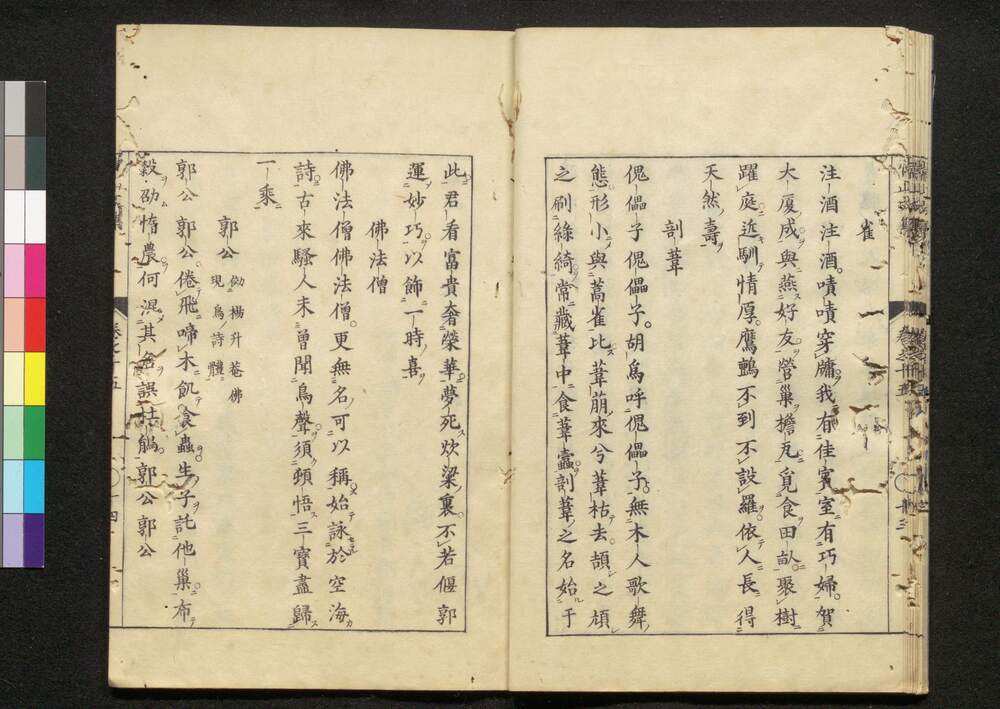 雀
注酒注酒嘖嘖穿牖我有佳賓室有巧婦賀
大廈成與燕好友營巢檐瓦覓食田畝聚樹
躍庭近馴情厚鷹鸇不到不設羅依人長得
天然壽
剖葦
傀儡子傀儡子胡爲呼傀儡子無木人歌舞
態形小與蒿雀比葦萠來兮葦枯去頡之頏
之刷綠綺常藏葦中食葦蠹剖葦之名始于
此君看富貴奢榮華夢死炊粱裏不若偃郭
運妙巧以飾一時喜
佛法僧
佛法僧佛法僧更無名可以稱始詠於空海
詩古來騷人未曾聞鳥聲須頓悟三寶盡歸
一乘
郭公
傚楊升菴佛
現鳥詩體
郭公郭公倦飛啼木飢食蟲生子託他巢布
穀劭惰農何混其名誤桔鵃郭公郭公